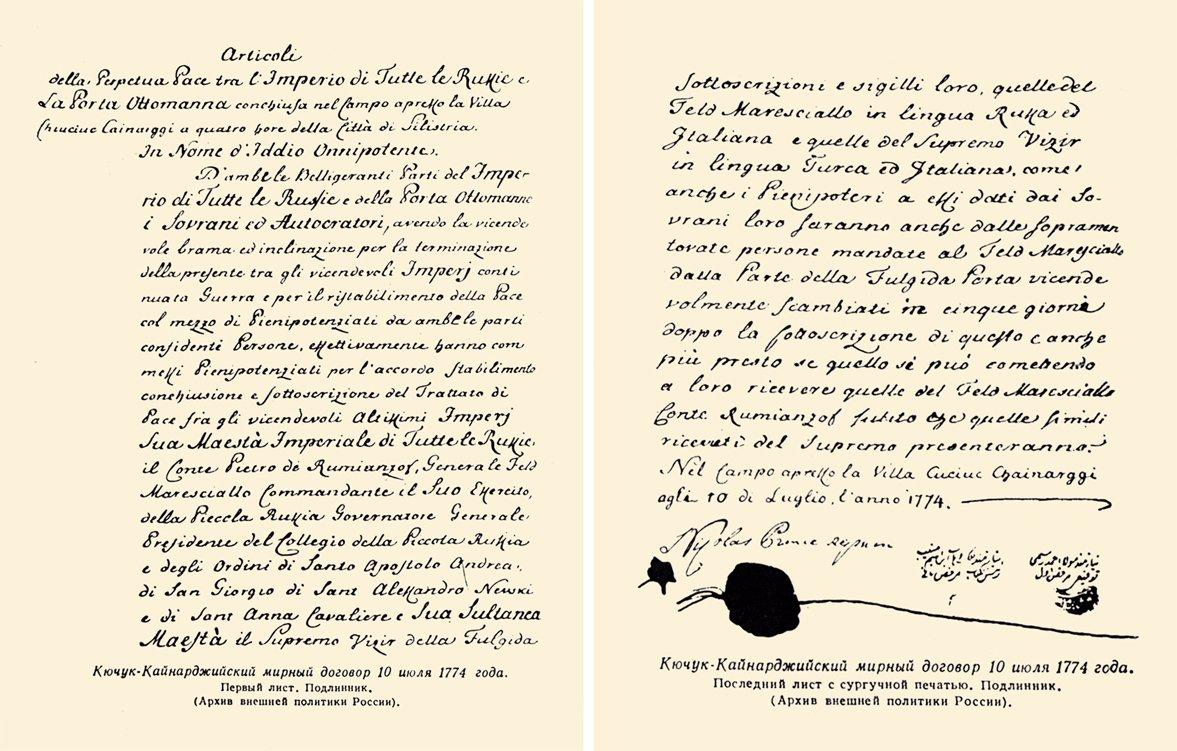 Articoli
della Perpetua Pace tra l'Imperio di Tutte le Russie e
La Porta Ottomanna conchiusa nel Campo apresso la Villa
Chuciuc Cainarggi a quatro hore della Città di Silistria.
In Nome d'Iddio Onnipotente.
D'ambble Belligeranti Parti del Impe-
rio di Tutte le Russie e della Porta Ottomanna
i Sovrani ed Autocratori, avendo la vicende
vole brama ed inclinazione per la terminazione
della presente tra gli vicendevoli Imperj conti
nuata Guerra e per il ristabilimento della Pace
col mezzo di Pienipotenziati da ambble parti
confidenti Persone, effettivamente hanno com
messi Pienipotenziati per l'accordo stabilimento
conchiusione e sottoscrizione del Trattato di
Pace fra gli vicendevoli Altissimi Imperj
Sua Maestà Imperiale di Tutte le Russie,
il Conte Pietro de Rumianzof, Generale Feld
Maresciallo Commandante il Suo Essercito,
della Piccola Russia Governatore Generale
Presidente del Collegio della Piccola Russia
e degli Ordini di Santo Apostolo Andrea,
di San Giorgio di Sant Alessandro Newski
e di Sant Anna Cavaliere e Sua Sultanea
Maestà il Supremo Vizir della Fulgida
Кючук-Кайнарджийский мирный договор 10 июля 1774 года.
Первый лист. Подлинник.
(Архив внешней политики России).
sottoscrizioni e sigilli loro, quelle del
Feld Maresciallo in lingua Russa ed
Italiana e quelle del Supremo Vizir
in lingua Turca ed Italiana, come
anche i Pienipoteri a essi dati dai So-
vrani loro saranno anche dalle sopramen
tovate persone mandate al Feld Maresciallo
dalla Parte della Fulgida Porta vicende
volmente scambiati in cinque giorni
doppo la sottoscrizione di questo e anche
più presto se quello si può comettendo
a loro ricevere quelle del Feld Maresciallo
Conte Rumianzof subito che quelle simili
ricevuti del Supremo presenteranno.
Nel Campo apresso la Villa Cuciuc Chainarggi
agli 10 di Luglio, l'anno 1774.
Nicolas Prince
Кючук-Кайнарджийский мирный договор 10 июля 1774 года.
Последний лист с сургучной печатью. Подлинник.
(Архив внешней политики России).